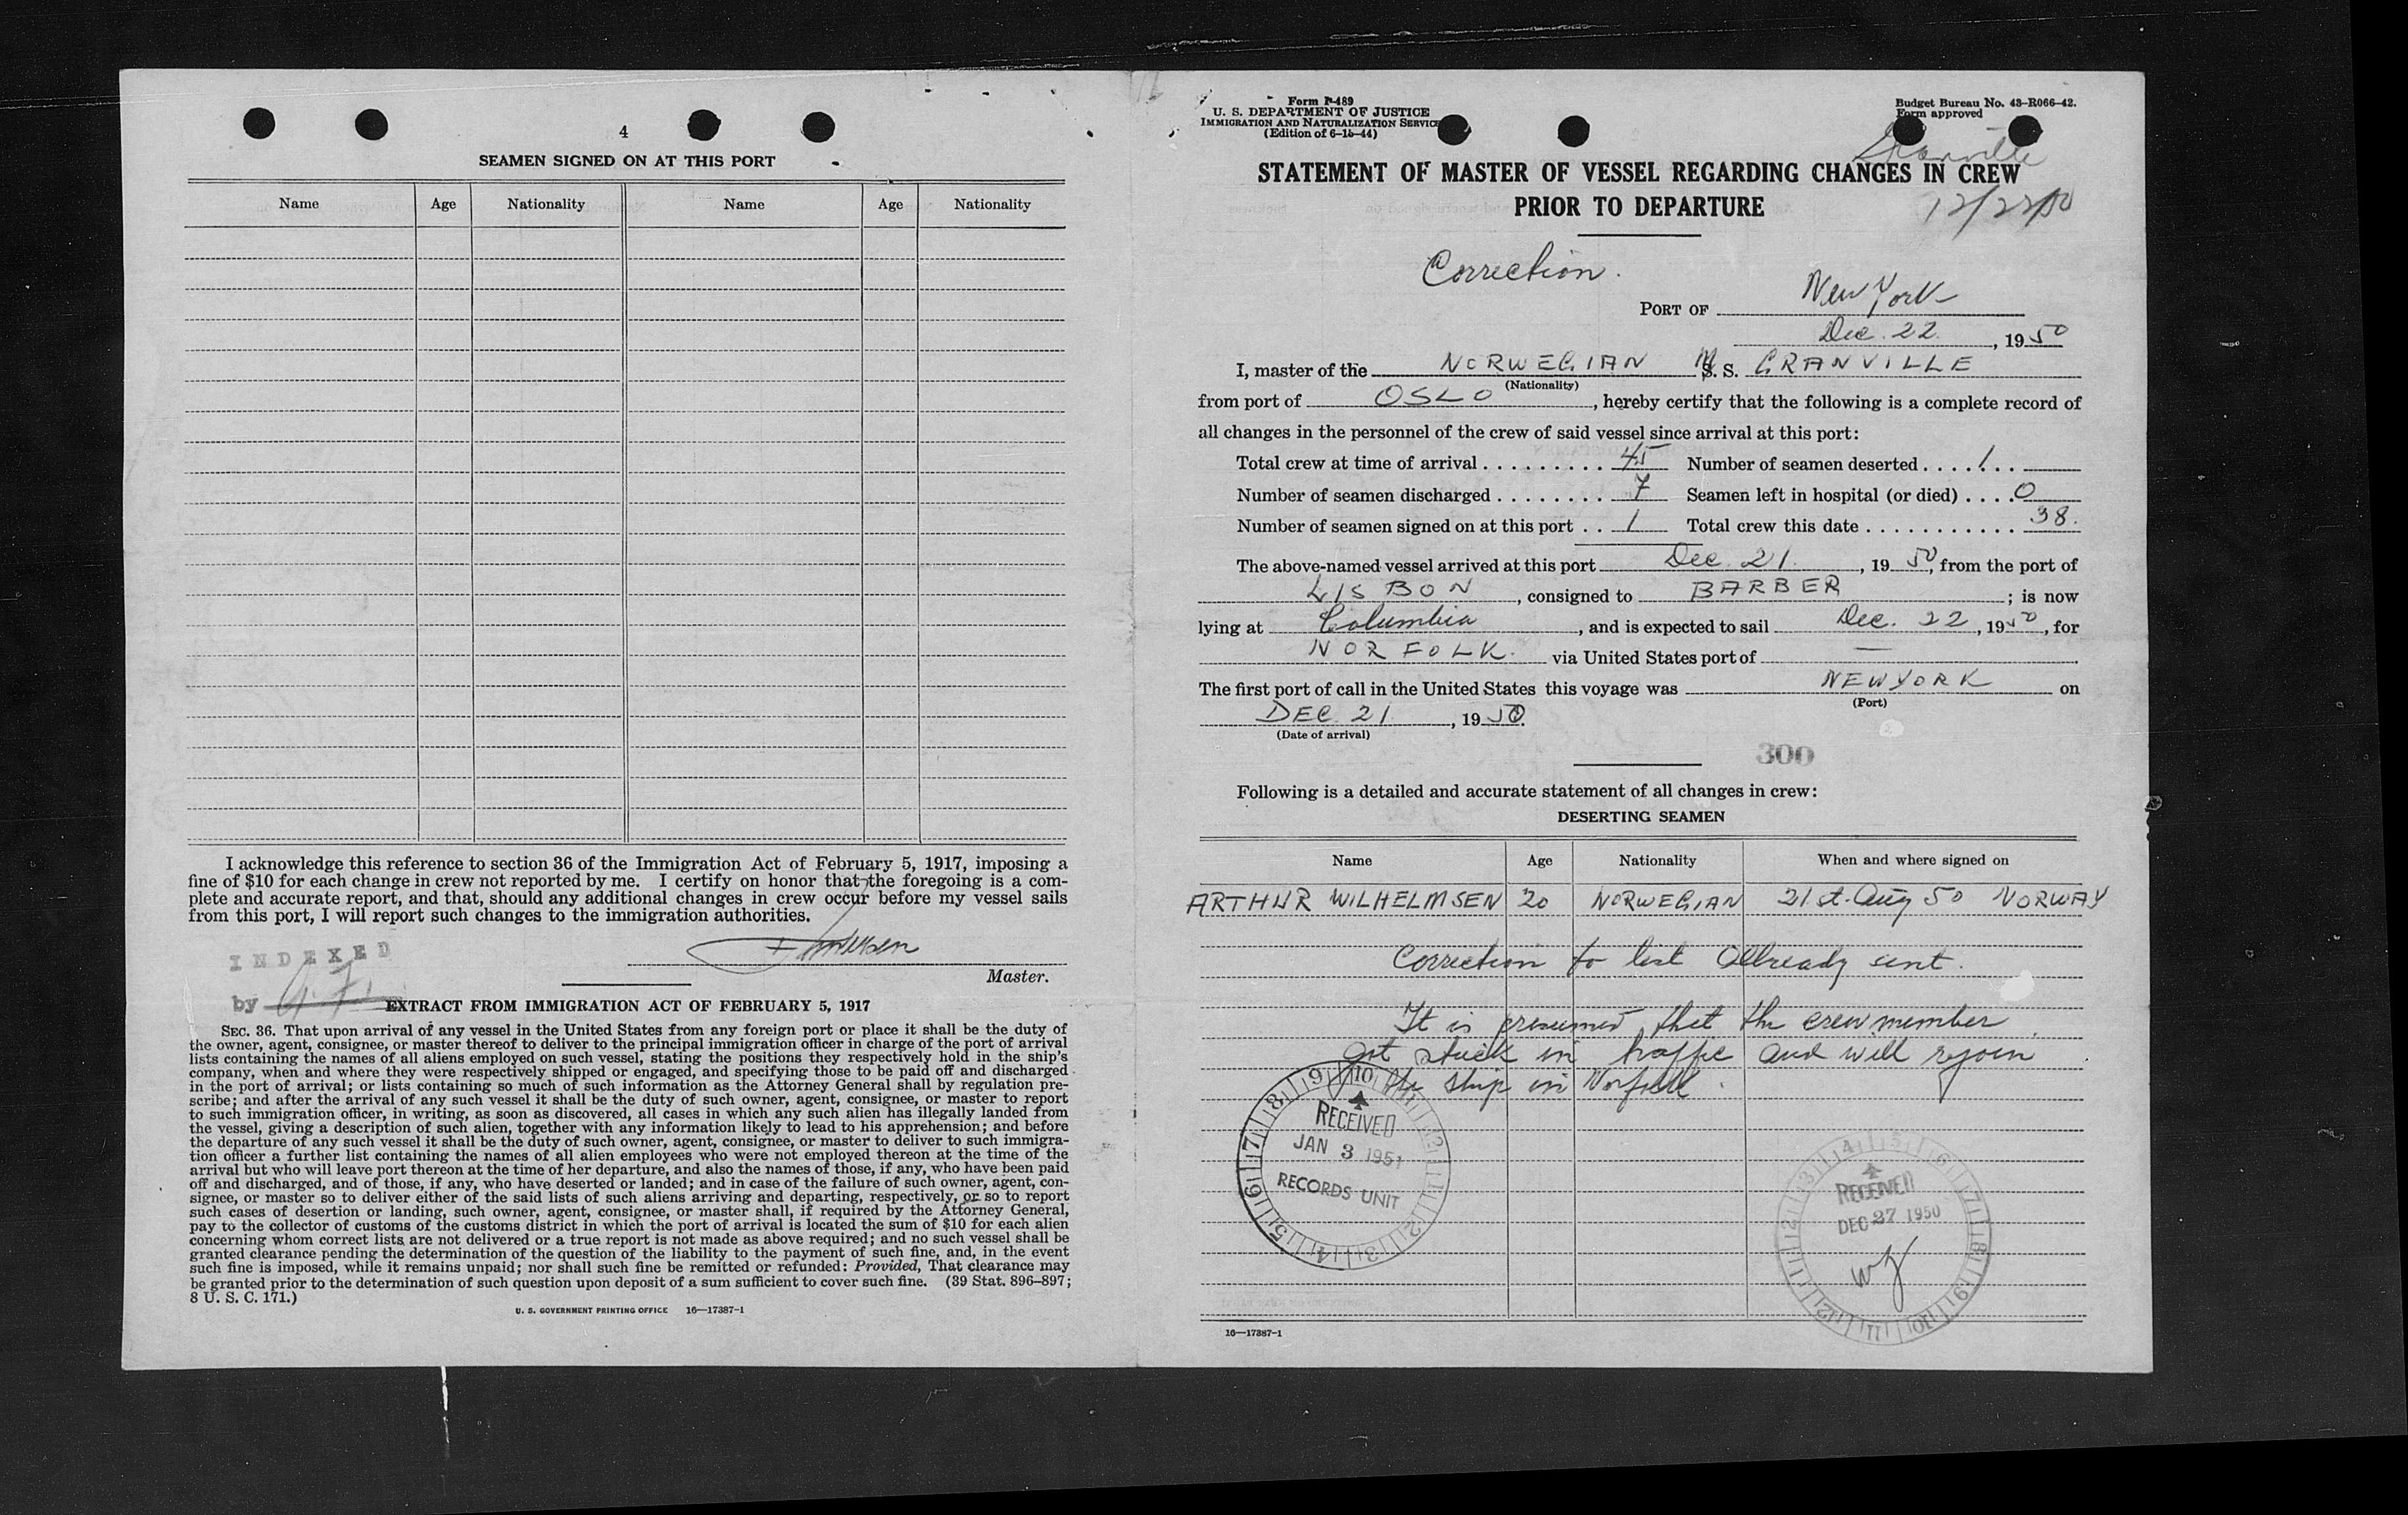 4
SEAMEN SIGNED ON AT THIS PORT
Name Age Nationality Name Age Nationality
I acknowledge this reference to section 36 of the Immigration Act of February 5, 1917, imposing a
fine of $10 for each change in crew not reported by me. I certify on honor that the foregoing is a com-
plete and accurate report, and that, should any additional changes in crew occur before my vessel sails
from this port, I will report such changes to the immigration authorities.
INDEXED
Master.
by
EXTRACT FROM IMMIGRATION ACT OF FEBRUARY 5, 1917
SEC. 36. That upon arrival of any vessel in the United States from any foreign port or place it shall be the duty of
the owner, agent, consignee, or master thereof to deliver to the principal immigration officer in charge of the port of arrival
lists containing the names of all aliens employed on such vessel, stating the positions they respectively hold in the ship's
company, when and where they were respectively shipped or engaged, and specifying those to be paid off and discharged
in the port of arrival; or lists containing so much of such information as the Attorney General shall by regulation pre-
scribe; and after the arrival of any such vessel it shall be the duty of such owner, agent, consignee, or master to report
to such immigration officer, in writing, as soon as discovered, all cases in which any such alien has illegally landed from
the vessel, giving a description of such alien, together with any information likely to lead to his apprehension; and before
the departure of any such vessel it shall be the duty of such owner, agent, consignee, or master to deliver to such immigra-
tion officer a further list containing the names of all alien employees who were not employed thereon at the time of the
arrival but who will leave port thereon at the time of her departure, and also the names of those, if any, who have been paid
off and discharged, and of those, if any, who have deserted or landed; and in case of the failure of such owner, agent, con-
signee, or master so to deliver either of the said lists of such aliens arriving and departing, respectively, or so to report
such cases of desertion or landing, such owner, agent, consignee, or master shall, if required by the Attorney General,
pay to the collector of customs of the customs district in which the port of arrival is located the sum of $10 for each alien
concerning whom correct lists are not delivered or a true report is not made as above required; and no such vessel shall be
granted clearance pending the determination of the question of the liability to the payment of such fine, and, in the event
such fine is imposed, while it remains unpaid; nor shall such fine be remitted or refunded: Provided, That clearance may
be granted prior to the determination of such question upon deposit of a sum sufficient to cover such fine. (39 Stat. 896–897;
8 U. S. C. 171.)
U. S. GOVERNMENT PRINTING OFFICE 16—17387-1
Form I-489
U. S. DEPARTMENT OF JUSTICE
IMMIGRATION AND NATURALIZATION SERVICE
(Edition of 6-15-44)
Budget Bureau No. 43-R066-42.
Form approved
Granville
STATEMENT OF MASTER OF VESSEL REGARDING CHANGES IN CREW
PRIOR TO DEPARTURE
12/22/50
Correction.
PORT OF New York
Dec. 22, 1950
I, master of the NORWEGIAN M S. S. GRANVILLE
(Nationality)
from port of OSLO, hereby certify that the following is a complete record of
all changes in the personnel of the crew of said vessel since arrival at this port:
Total crew at time of arrival . . . . . . . . . 45 Number of seamen deserted . . . . 1 . .
Number of seamen discharged . . . . . . . . 7 Seamen left in hospital (or died) . . . . 0
Number of seamen signed on at this port . . 1 Total crew this date . . . . . . . . . . . . 38.
The above-named vessel arrived at this port Dec. 21, 1950, from the port of
LISBON, consigned to BARBER; is now
lying at Columbia, and is expected to sail Dec. 22, 1950, for
NORFOLK. via United States port of —
The first port of call in the United States this voyage was NEW YORK on
(Port)
DEC. 21, 1950.
(Date of arrival)
300
Following is a detailed and accurate statement of all changes in crew:
DESERTING SEAMEN
Name Age Nationality When and where signed on
ARTHUR WILHELMSEN 20 NORWEGIAN 21st. Aug 50 NORWAY
Correction to list Allready sent.
It is presumed that the crewmember
got stuck in traffic and will rejoin
the ship in Norfolk.
9 10 11 12 1 2 3 4 5 6 7 8
RECEIVED
JAN 3 1951
RECORDS UNIT
4 5 6 7 8 9 10 11 12 1 2 3
RECEIVED
DEC 27 1950
16—17387-1